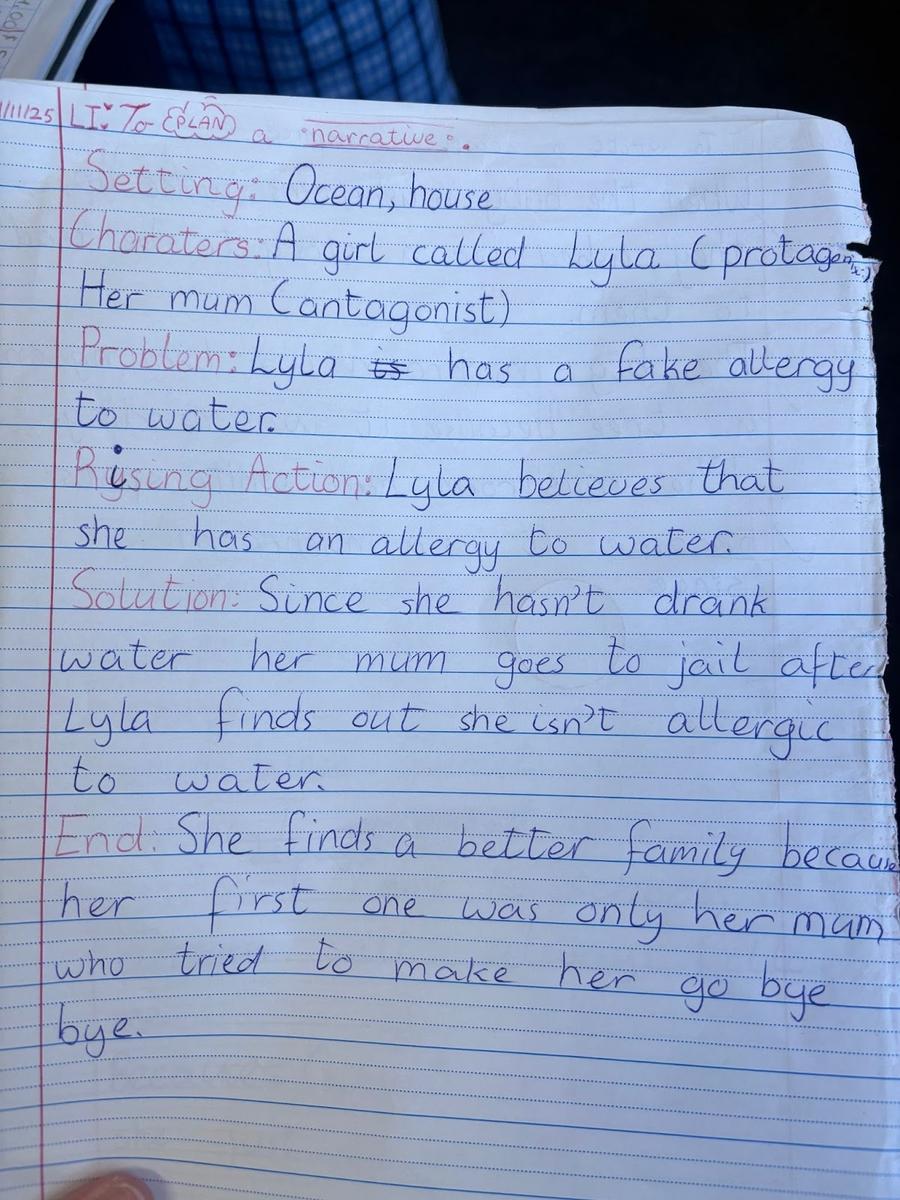 /11/25 LI: To PLAN a narrative.
Setting: Ocean, house
Charaters: A girl called Lyla (protagonist)
Her mum (antagonist)
Problem: Lyla is has a fake allergy
to water.
Rising Action: Lyla believes that
she has an allergy to water.
Solution: Since she hasn't drank
water her mum goes to jail after
Lyla finds out she isn't allergic
to water.
End: She finds a better family because
her first one was only her mum
who tried to make her go bye
bye.